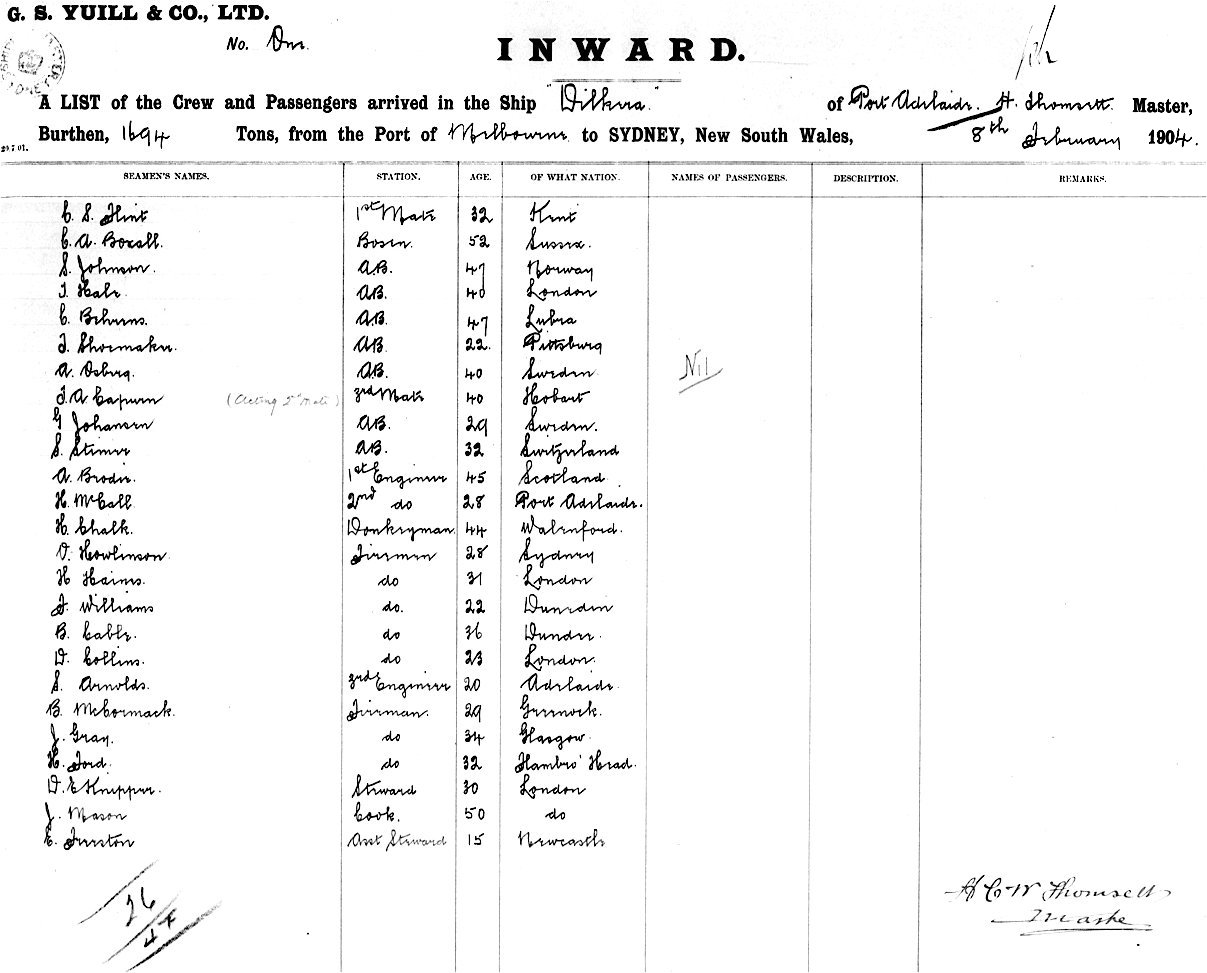 G. S. YUILL & CO., LTD.
No. One.
INWARD.
A LIST of the Crew and Passengers arrived in the Ship "Dilkera" of Port Adelaide. H. Thomsett. Master,
Burthen, 1694 Tons, from the Port of Melbourne to SYDNEY, New South Wales, 8th February 1904.
SEAMEN'S NAMES. STATION. AGE. OF WHAT NATION. NAMES OF PASSENGERS. DESCRIPTION. REMARKS.
C. S. Flint 1st Mate 32 Kent
C. A. Boxall. Bosen. 52 Sussex.
S. Johnson. A.B. 47 Norway
T. Hale A.B. 40 London
C. Behrens. A.B. 47 Lubra
T. Shoemaker. A.B. 22. Pittsburg
A. Osberg. A.B. 40 Sweden
Nil
T. A. Capurn (Acting 2nd Mate) 3rd Mate 40 Hobart
G Johansen A.B. 29 Sweden.
S. Steiner A.B. 32 Switzerland
A. Brodie. 1st Engineer 45 Scotland
H. McCall 2nd do 28 Port Adelaide.
H. Chalk. Donkeyman. 44 Walenford.
D. Howlinson. Firemen 28 Sydney
H Haims. do 31 London
J. Williams do. 22 Dunedin
B. Cable. do 36 Dundee.
D. Collins. do 23 London.
S. Arnolds. 3rd Engineer 20 Adelaide.
B. McCormack. Fireman. 29 Greenock.
J. Gray. do 34 Glasgow.
H. Ford. do 32 Hambro' Head.
D. E Knipper. Steward 30 London
J. Mason Cook. 50 do
E. Freeston Asst Steward 15 Newcastle
26
H C W Thomsett